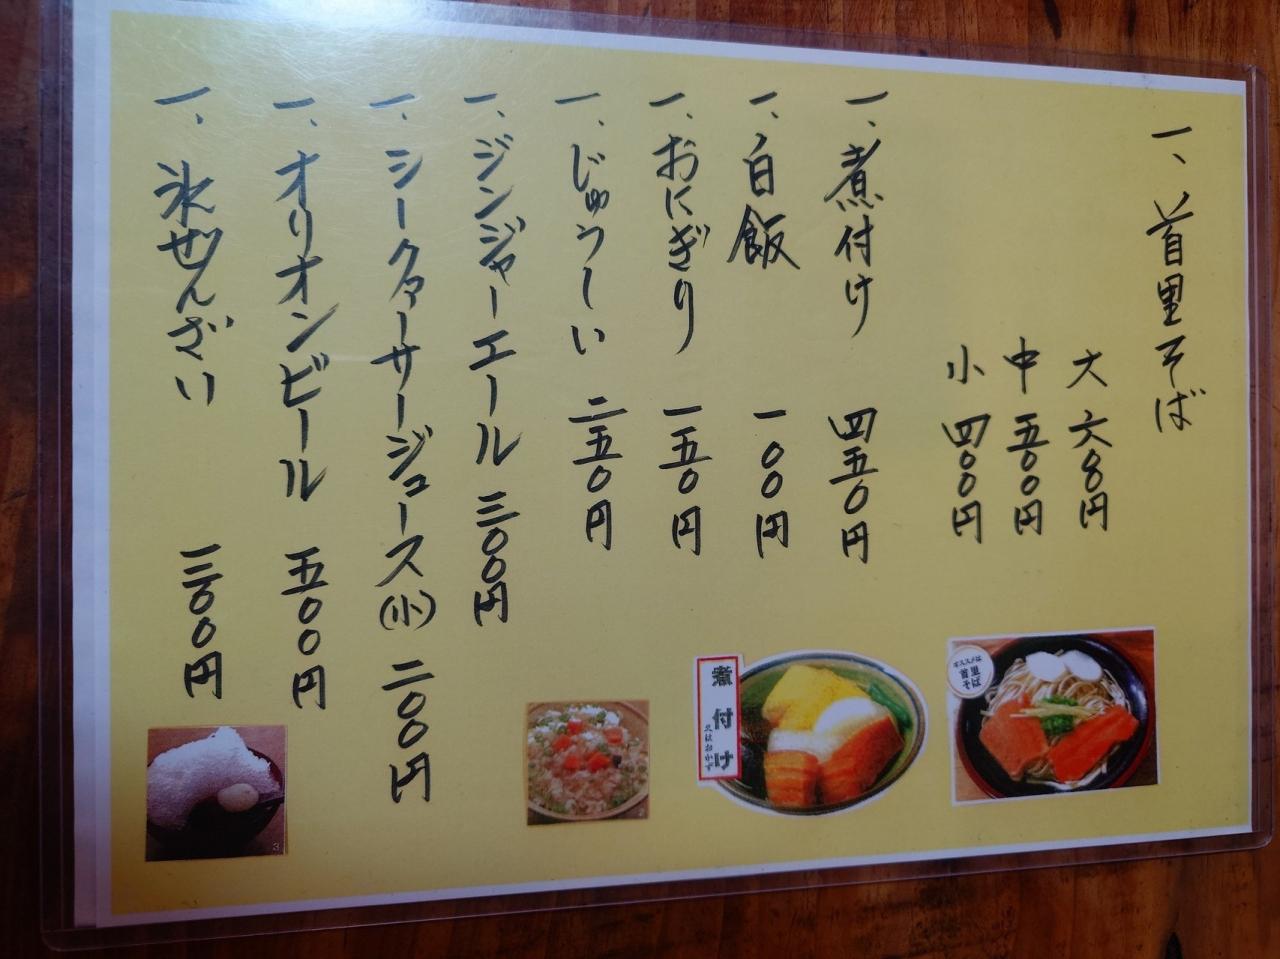 一、首里そば
大 六〇〇円
中 五〇〇円
小 四〇〇円
一、煮付け 四五〇円
一、白飯 一〇〇円
一、おにぎり 一五〇円
一、じゅうしい 二五〇円
一、ジンジャーエール 三〇〇円
一、シークヮーサージュース(小) 二〇〇円
一、オリオンビール 五〇〇円
一、氷ぜんざい 三〇〇円
オススメは
首里
そば
煮付け
3